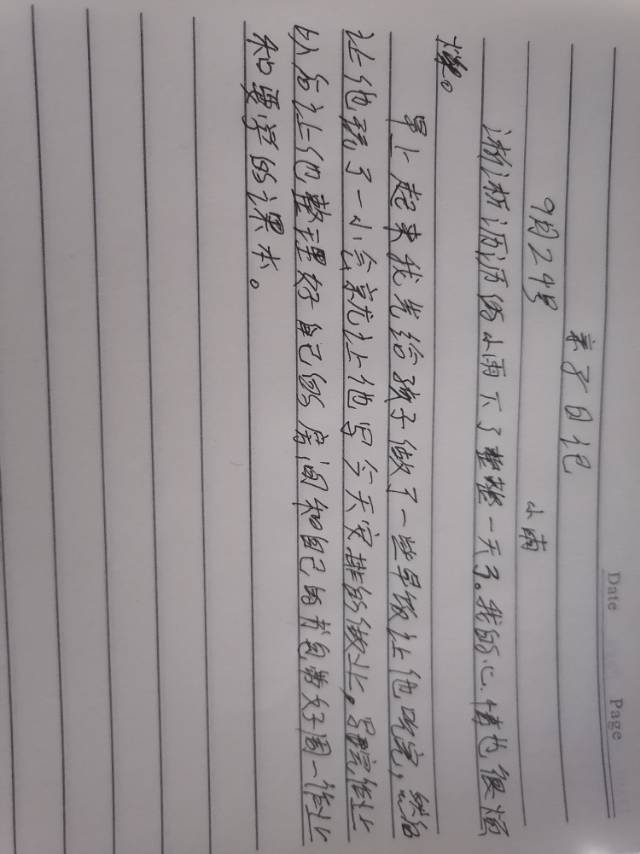 Date Page
亲子日记
9月24号 小雨
淅淅沥沥的小雨下了整整一天了。我的心情也很烦
燥。
早上起来我先给孩子做了一些早饭让他吃完，然后
让他玩了一小会就让他写今天安排的作业，写完作业
以后让他整理好自己的房间和自己的书包带好周一作业
和要学的课本。